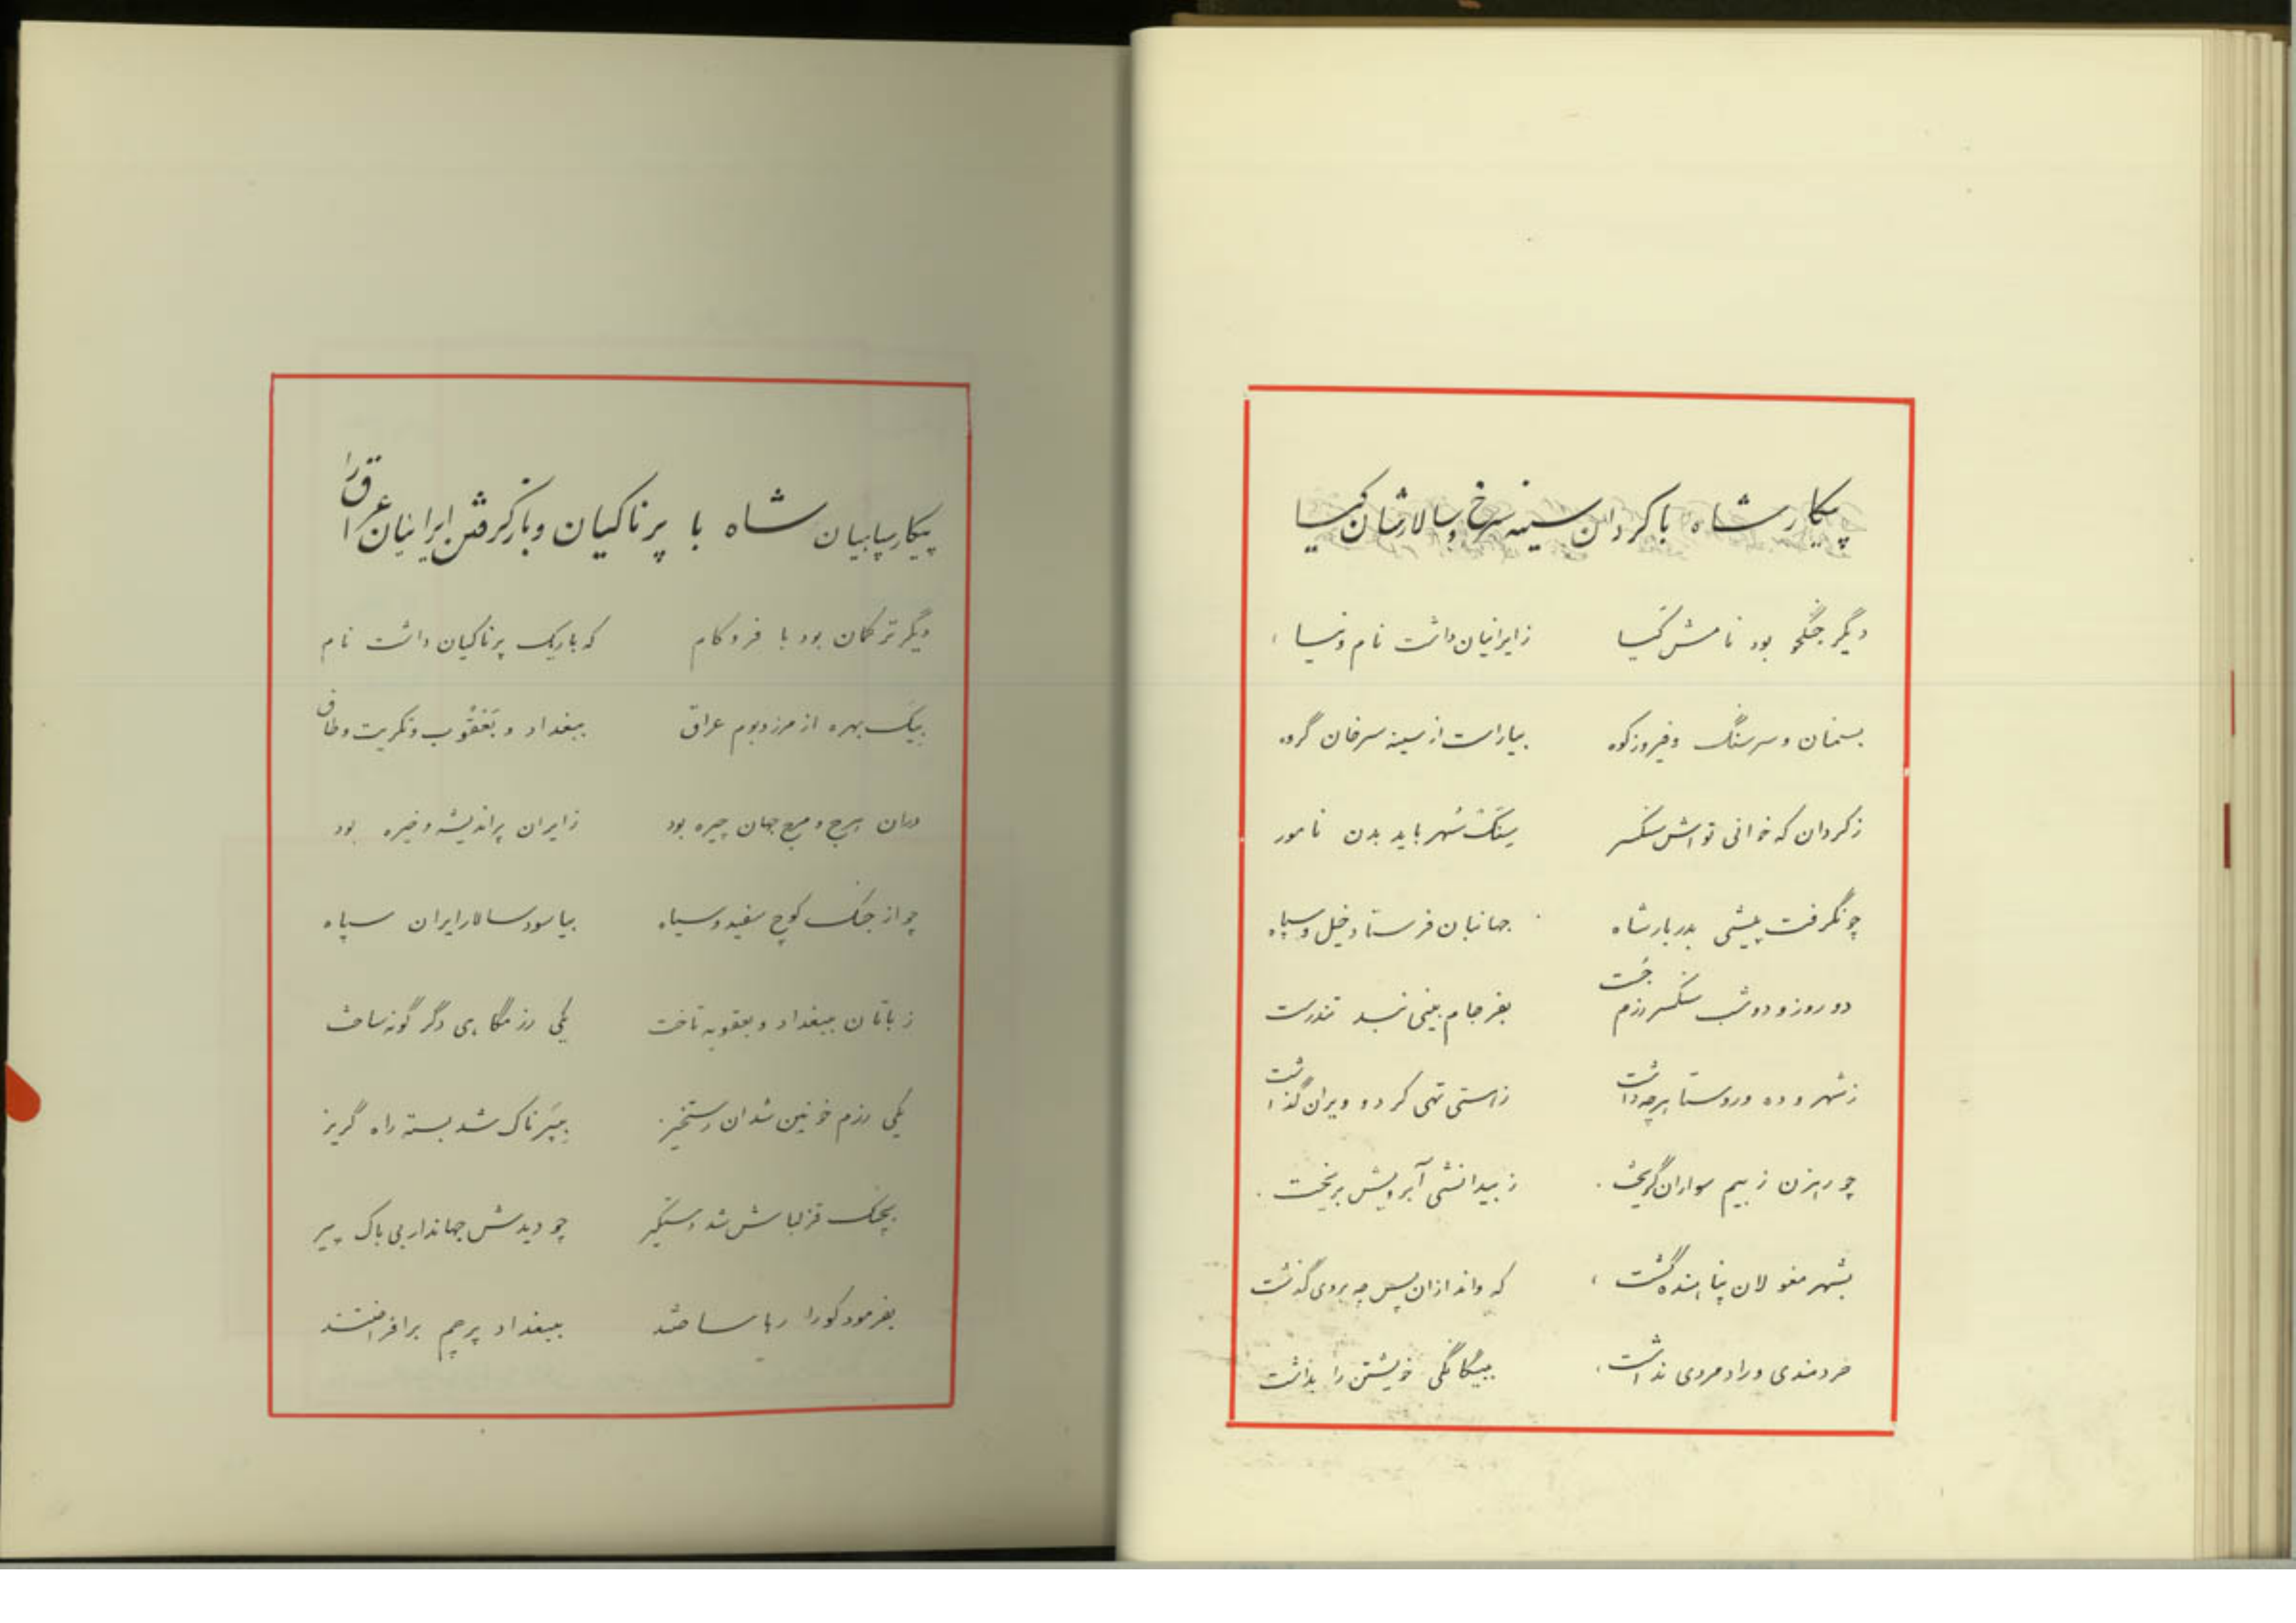 پیکار شاه با کردان سینه سرخ و سالارشان کیا
دیگر جنگجو بود نامش کیا زایرانیان داشت نام و نیا
بسمنان و سرسنگ و فیروزکوه بیاراست از سینه سرخان گروه
ز کردان که خوانی تواش سنگسر بسنگ شهر باید بدن نامور
چو نگرفت پیشی بدربار شاه جهانبان فرستاد خیل و سپاه
دو روز و دو شب سنگسر رزم جست بفرجام بینی نبد تندرست
ز شهر و ده و روستا هرچه داشت ز هستی تهی کرد و ویران گذاشت
چو رهزن ز بیم سواران گریخت ز بیدانشی آبرویش بریخت
بشهر مغولان پناهنده گشت که داند ازان پس چه بروی گذشت
خردمندی و رادمردی نداشت ببیگانگی خویشتن را بداشت
پیکار سپاهیان شاه با پرناکیان و بازگرفتن ایرانیان عراق را
دیگر ترکمان بود با فر و کام که باریک پرناکیان داشت نام
بیک بهره از مرز و بوم عراق ببغداد و بعقوب و تکریت و طاق
دران هرج و مرج جهان چیره بود ز ایران پراندیشه و خیره بود
چو از جنگ کوچ سفید و سیاه بیاسود سالار ایران سپاه
ز باتان ببغداد و بعقوبه تاخت یکی رزمگاهی دگرگونه ساخت
یکی رزم خونین شد ان رستخیز بپرناک شد بسته راه گریز
بچنگ قزلباش شد دستگیر چو دیدش جهاندار بی باک پیر
بفرمود کورا رها ساختند ببغداد پرچم برافراختند